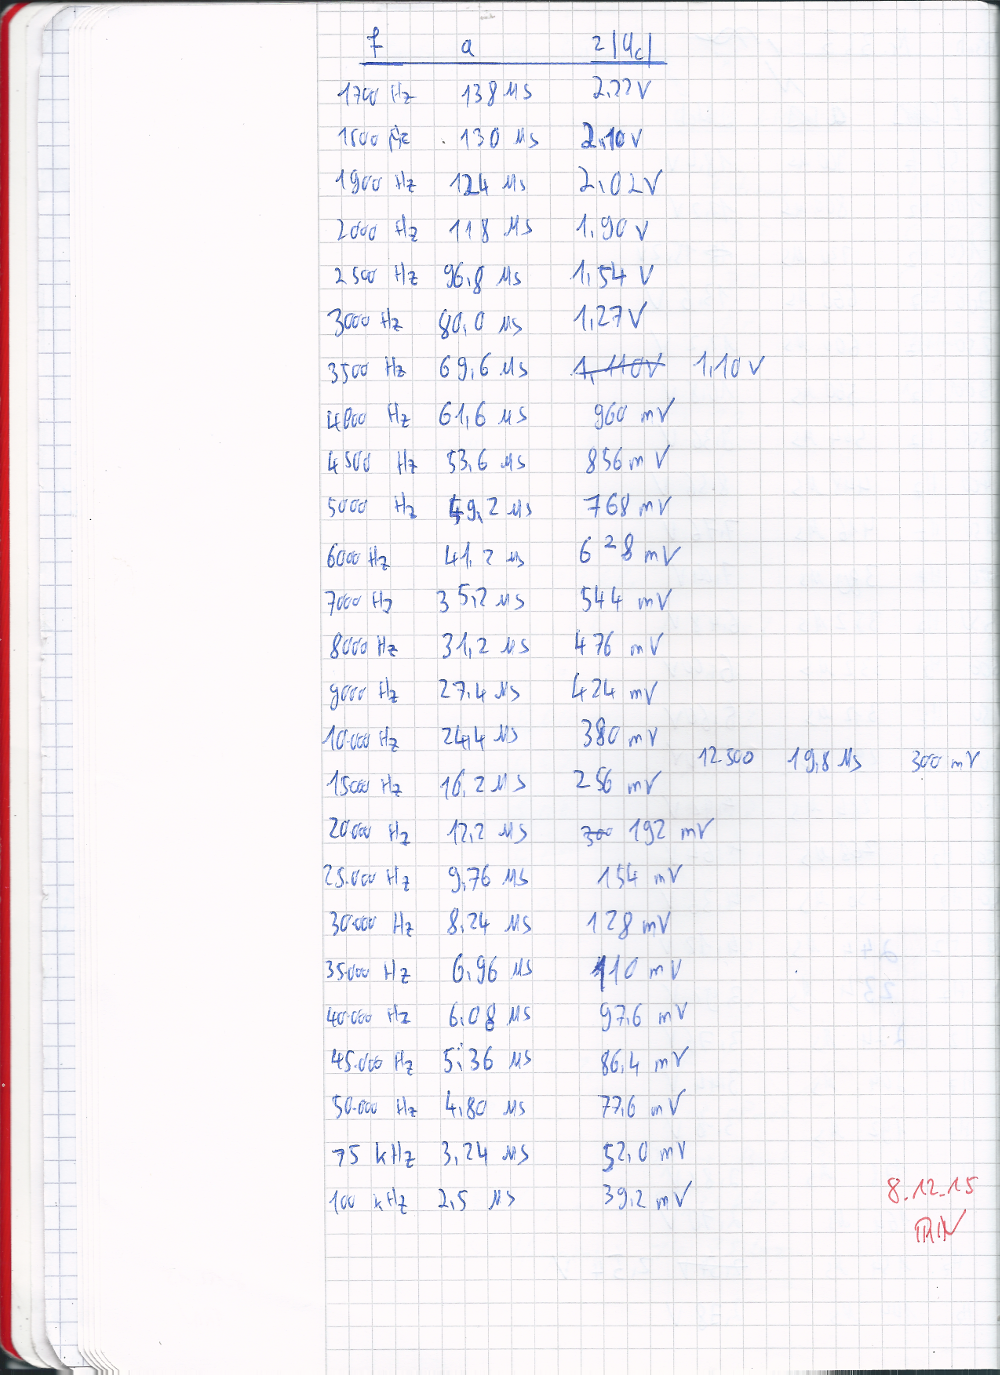 f a 2|U_c|
1700 Hz 138 µs 2,22 V
1800 Hz 130 µs 2,10 V
1900 Hz 124 µs 2,02 V
2000 Hz 118 µs 1,90 V
2500 Hz 96,8 µs 1,54 V
3000 Hz 80,0 µs 1,27 V
3500 Hz 69,6 µs 1,110 V 1,10 V
4000 Hz 61,6 µs 960 mV
4500 Hz 53,6 µs 856 mV
5000 Hz 49,2 µs 768 mV
6000 Hz 41,2 µs 628 mV
7000 Hz 35,2 µs 544 mV
8000 Hz 31,2 µs 476 mV
9000 Hz 27,4 µs 424 mV
10.000 Hz 24,4 µs 380 mV
12.500 19,8 µs 300 mV
15000 Hz 16,2 µs 256 mV
20.000 Hz 12,2 µs 300 192 mV
25.000 Hz 9,76 µs 154 mV
30.000 Hz 8,24 µs 128 mV
35.000 Hz 6,96 µs 110 mV
40.000 Hz 6,08 µs 97,6 mV
45.000 Hz 5,36 µs 86,4 mV
50.000 Hz 4,80 µs 77,6 mV
75 kHz 3,24 µs 52,0 mV
100 kHz 2,5 µs 39,2 mV
8.12.15